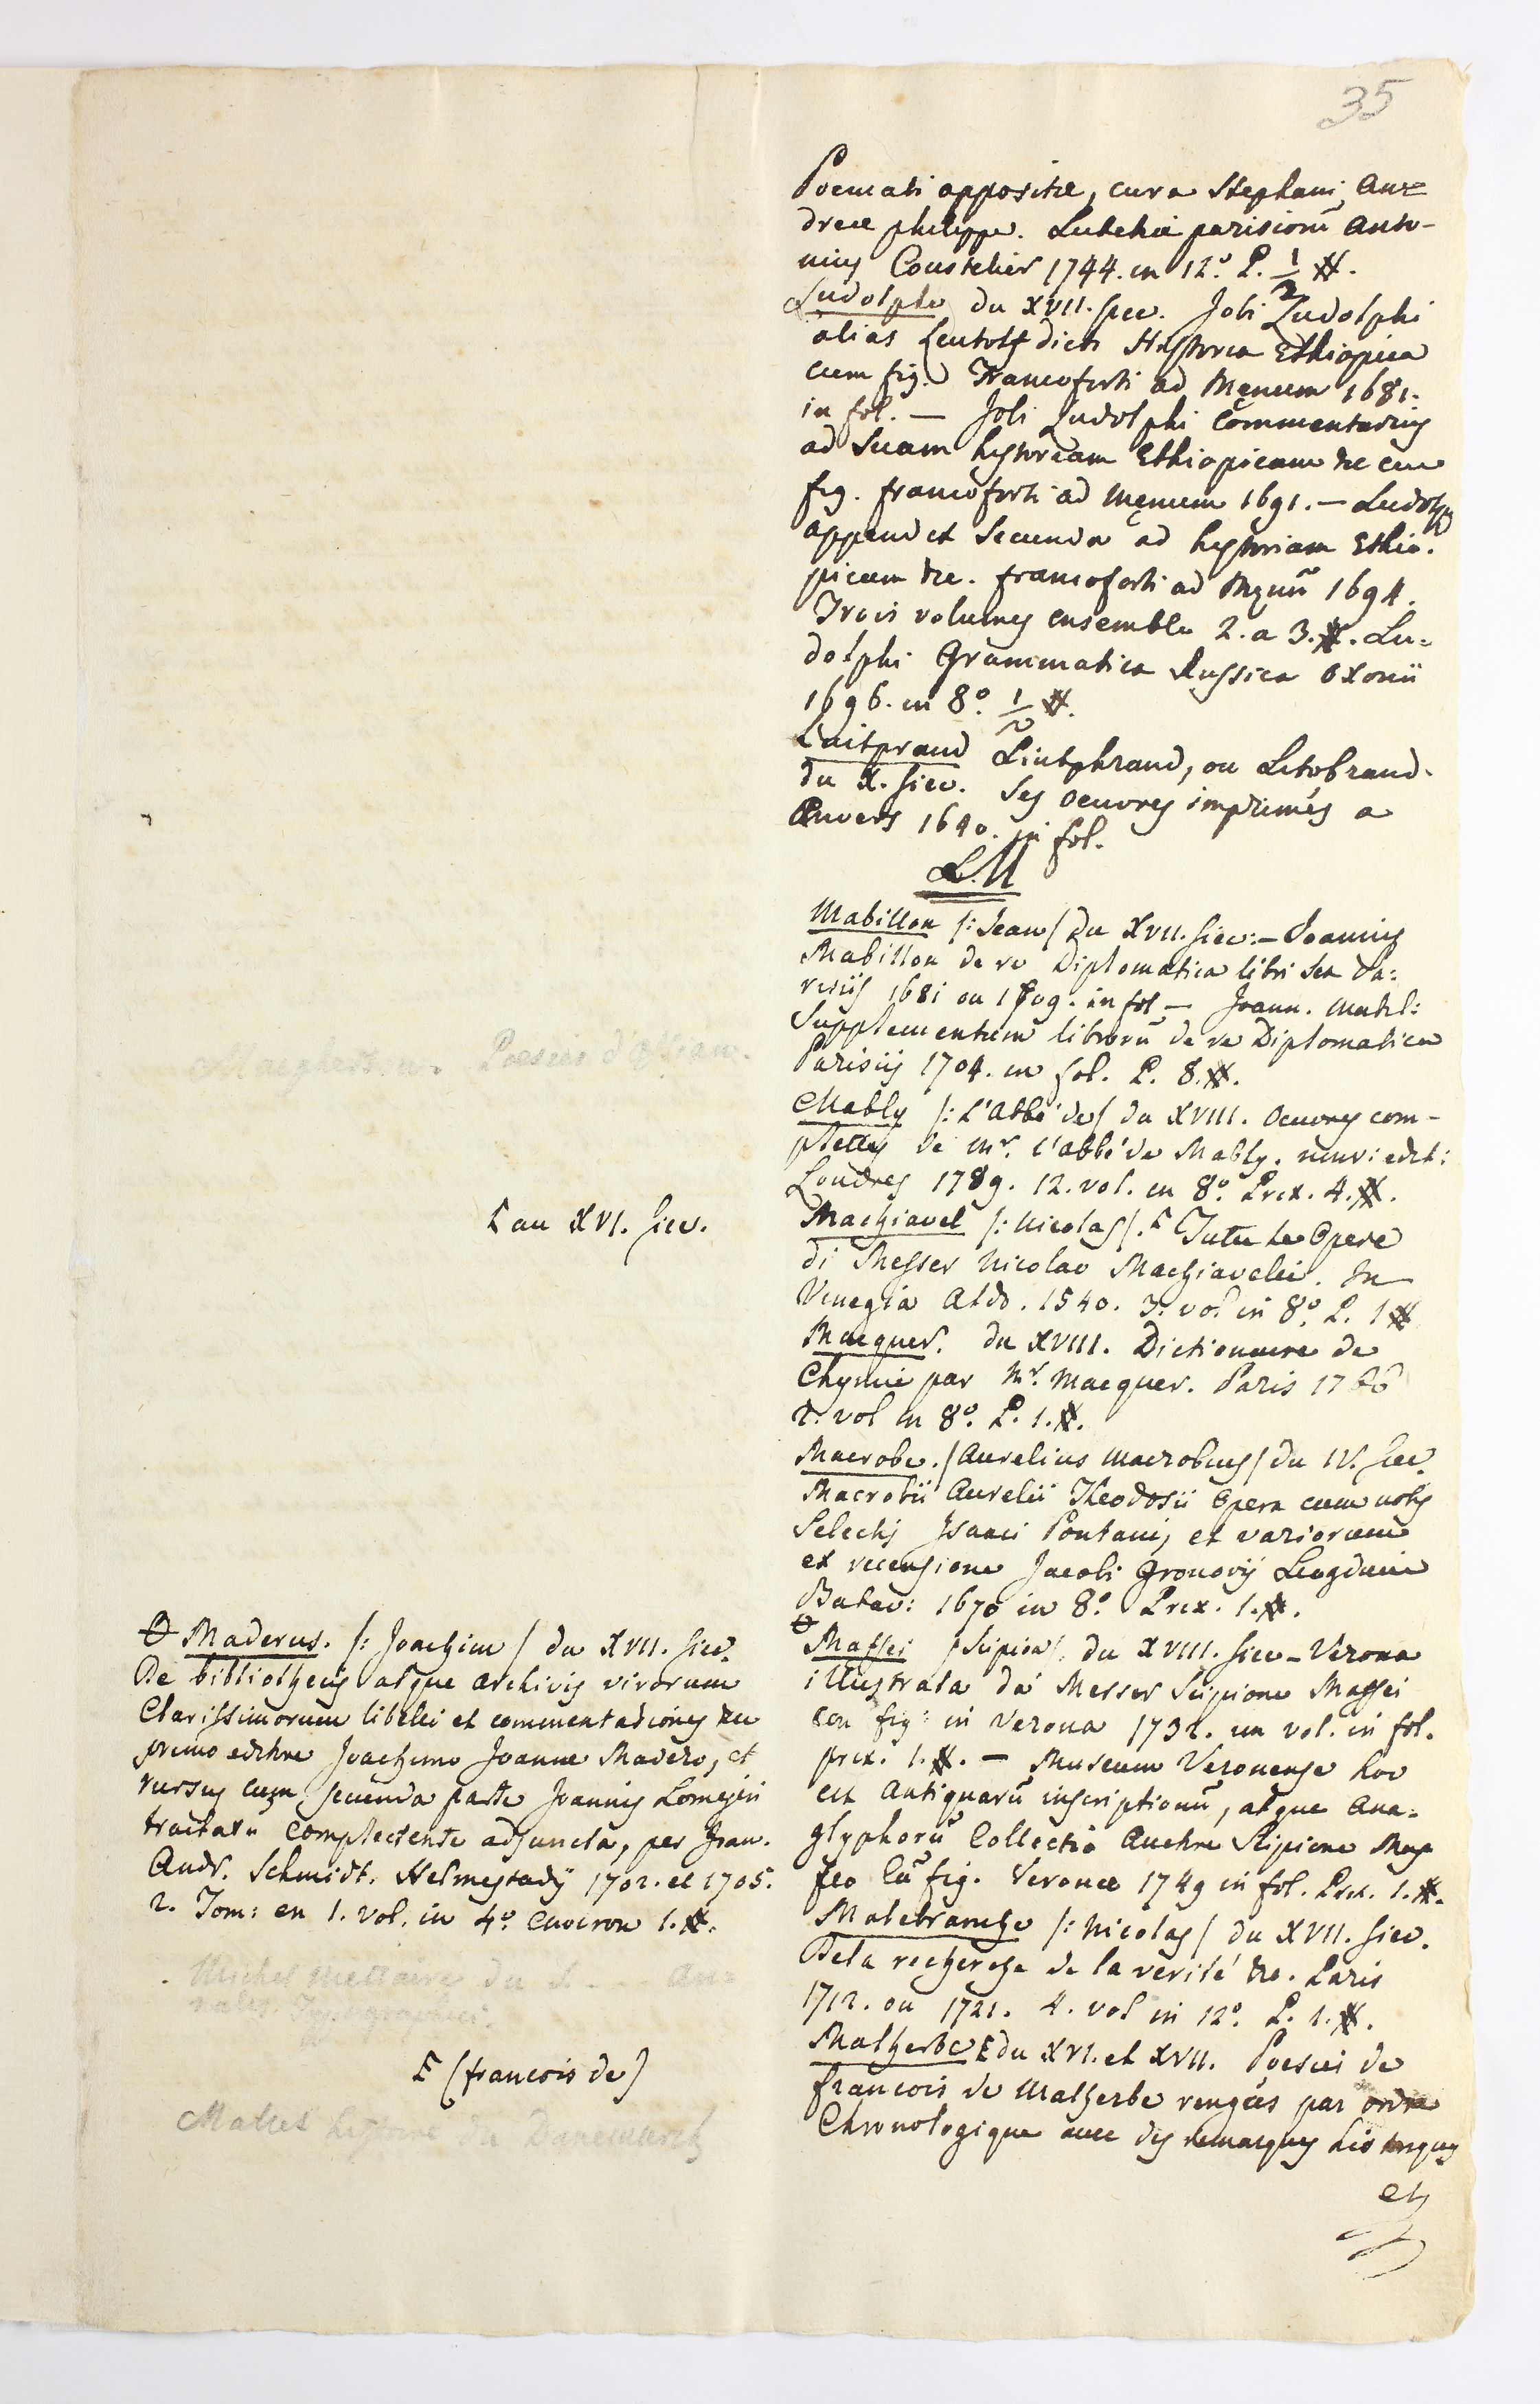 35
Poemati appositæ, cura Stephani An=
dreæ philippe. Lutetiæ parisiorū Anto-
nius Coustelier 1744. in 12º. P. 1/2 #.
Ludolphe du XVII. siec. Jobi Ludolphi
alias Leutolf dicti Historia Ethiopica
cum fig. Francoforti ad Menum 1681.
in fol. — Jobi Ludolphi Commentarius
ad Suam hystoriam Ethiopicam &c cum
fig. francoforti ad Mænum 1691. — Ludolphi
append et Secunda ad hystoriam Ethio-
picam &c. francoforti ad Mænū 1694.
Trois volumes ensemble 2. a 3. #. Lu=
dolphi Grammatica Russica Oxonii
1696. in 8º. 1/2 #.
Luitprand Liutphrand, ou Litobrand.
du X. siec. Ses oeuvres imprimés a
Anvers 1640. in fol.
M
Mabillon /: Jean / du XVII. siec: — Joannis
Mabillon de re Diplomatica libri sex Pa=
risiis 1681 ou 1709. in fol — Joann. Mabil:
Supplementum librorū de re Diplomatica
Parisiis 1704. in fol. P. 8. #.
Mably /: L'Abbé de / du XVIII. Oeuvres com-
plettes de Mr. l'abbé de Mably. nouv: edit:
Londres 1789. 12. vol. in 8º. Prix. 4. #.
au XVI. siec.
Machiavel /: Nicolas /. Tutte le Opere
di Messer Nicolao Machiavelli. In
Venegia Aldo. 1540. 3. vol in 8º. P. 1 #
Macquer. du XVIII. Dictionaire de
Chymie par Mr. Macquer. Paris 1766
2. vol in 8º. P. 1. #.
Macrobe. / Aurelius Macrobius / du IV. siec.
Macrobii Aurelii Theodosii Opera cum notis
Selectis Isaaci Pontani, et variorum
ex recensione Jacobi Gronovij Lugduni
Batav: 1670 in 8º. Prix. 1. #.
Maderus. /: Joachim / du XVII. siec.
De bibliothecis atque archivis virorum
Clarissimorum libelli et commentationes &c
primo editore Joachimo Joanne Madero, et
rursus cum secunda parte Joannis Lomejeri
tractatu complectente adjuncta, per Joan.
Andr. Schmidt. Helmestadij 1702. et 1705.
2. Tom: en 1. vol. in 4º. environ 1. #.
Maffei / Scipion / du XVIII. siec — Verona
illustrata da Messer Scipione Maffei
con fig: in Verona 1732. un vol. in fol.
prix. 1. #. — Museum Veronense hoc
est Antiquarū inscriptionū, atque Ana=
glyphorū Collectio Auctore Scipione Maf
feo cū fig. Veronæ 1749 in fol. Prix. 1. #.
Malebranche /: Nicolas / du XVII. siec.
De la recherche de la verité &c. Paris
1712. ou 1721. 4. vol in 12º. P. 1. #.
Michel Mettaire du
nales Typographici.
(francois de)
Malherbe du XVI. et XVII. Poesies de
francois de Malherbe rengées par ordre
Chronologique avec des remarques historiques
Mallet hystoire du Danemarck
et